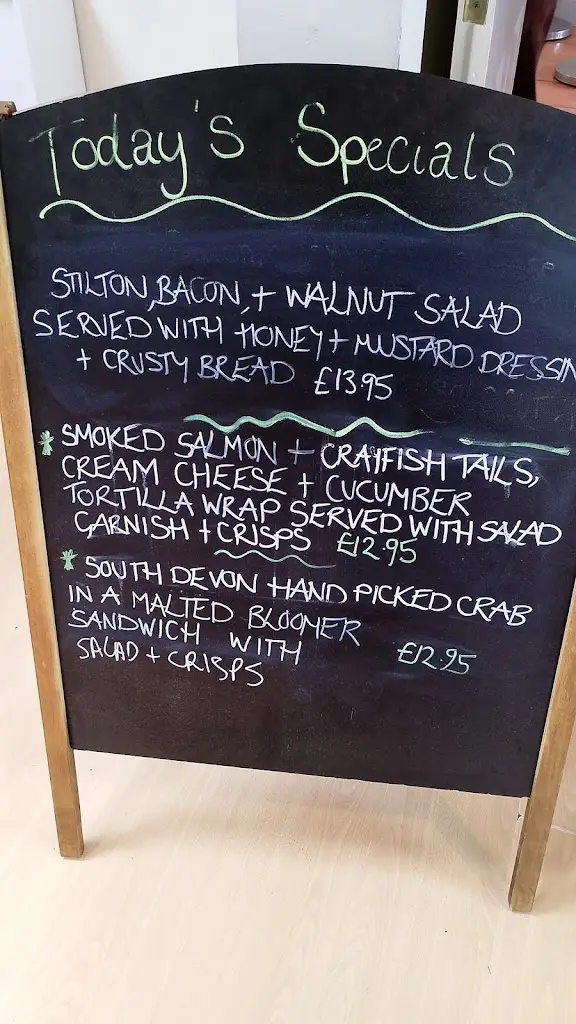 Today's Specials
STILTON, BACON, + WALNUT SALAD
SERVED WITH HONEY + MUSTARD DRESSIN
+ CRUSTY BREAD £13.95
SMOKED SALMON + CRAYFISH TAILS,
CREAM CHEESE + CUCUMBER
TORTILLA WRAP SERVED WITH SALAD
GARNISH + CRISPS £12.95
SOUTH DEVON HAND PICKED CRAB
IN A MALTED BLOOMER
SANDWICH WITH £12.95
SALAD + CRISPS